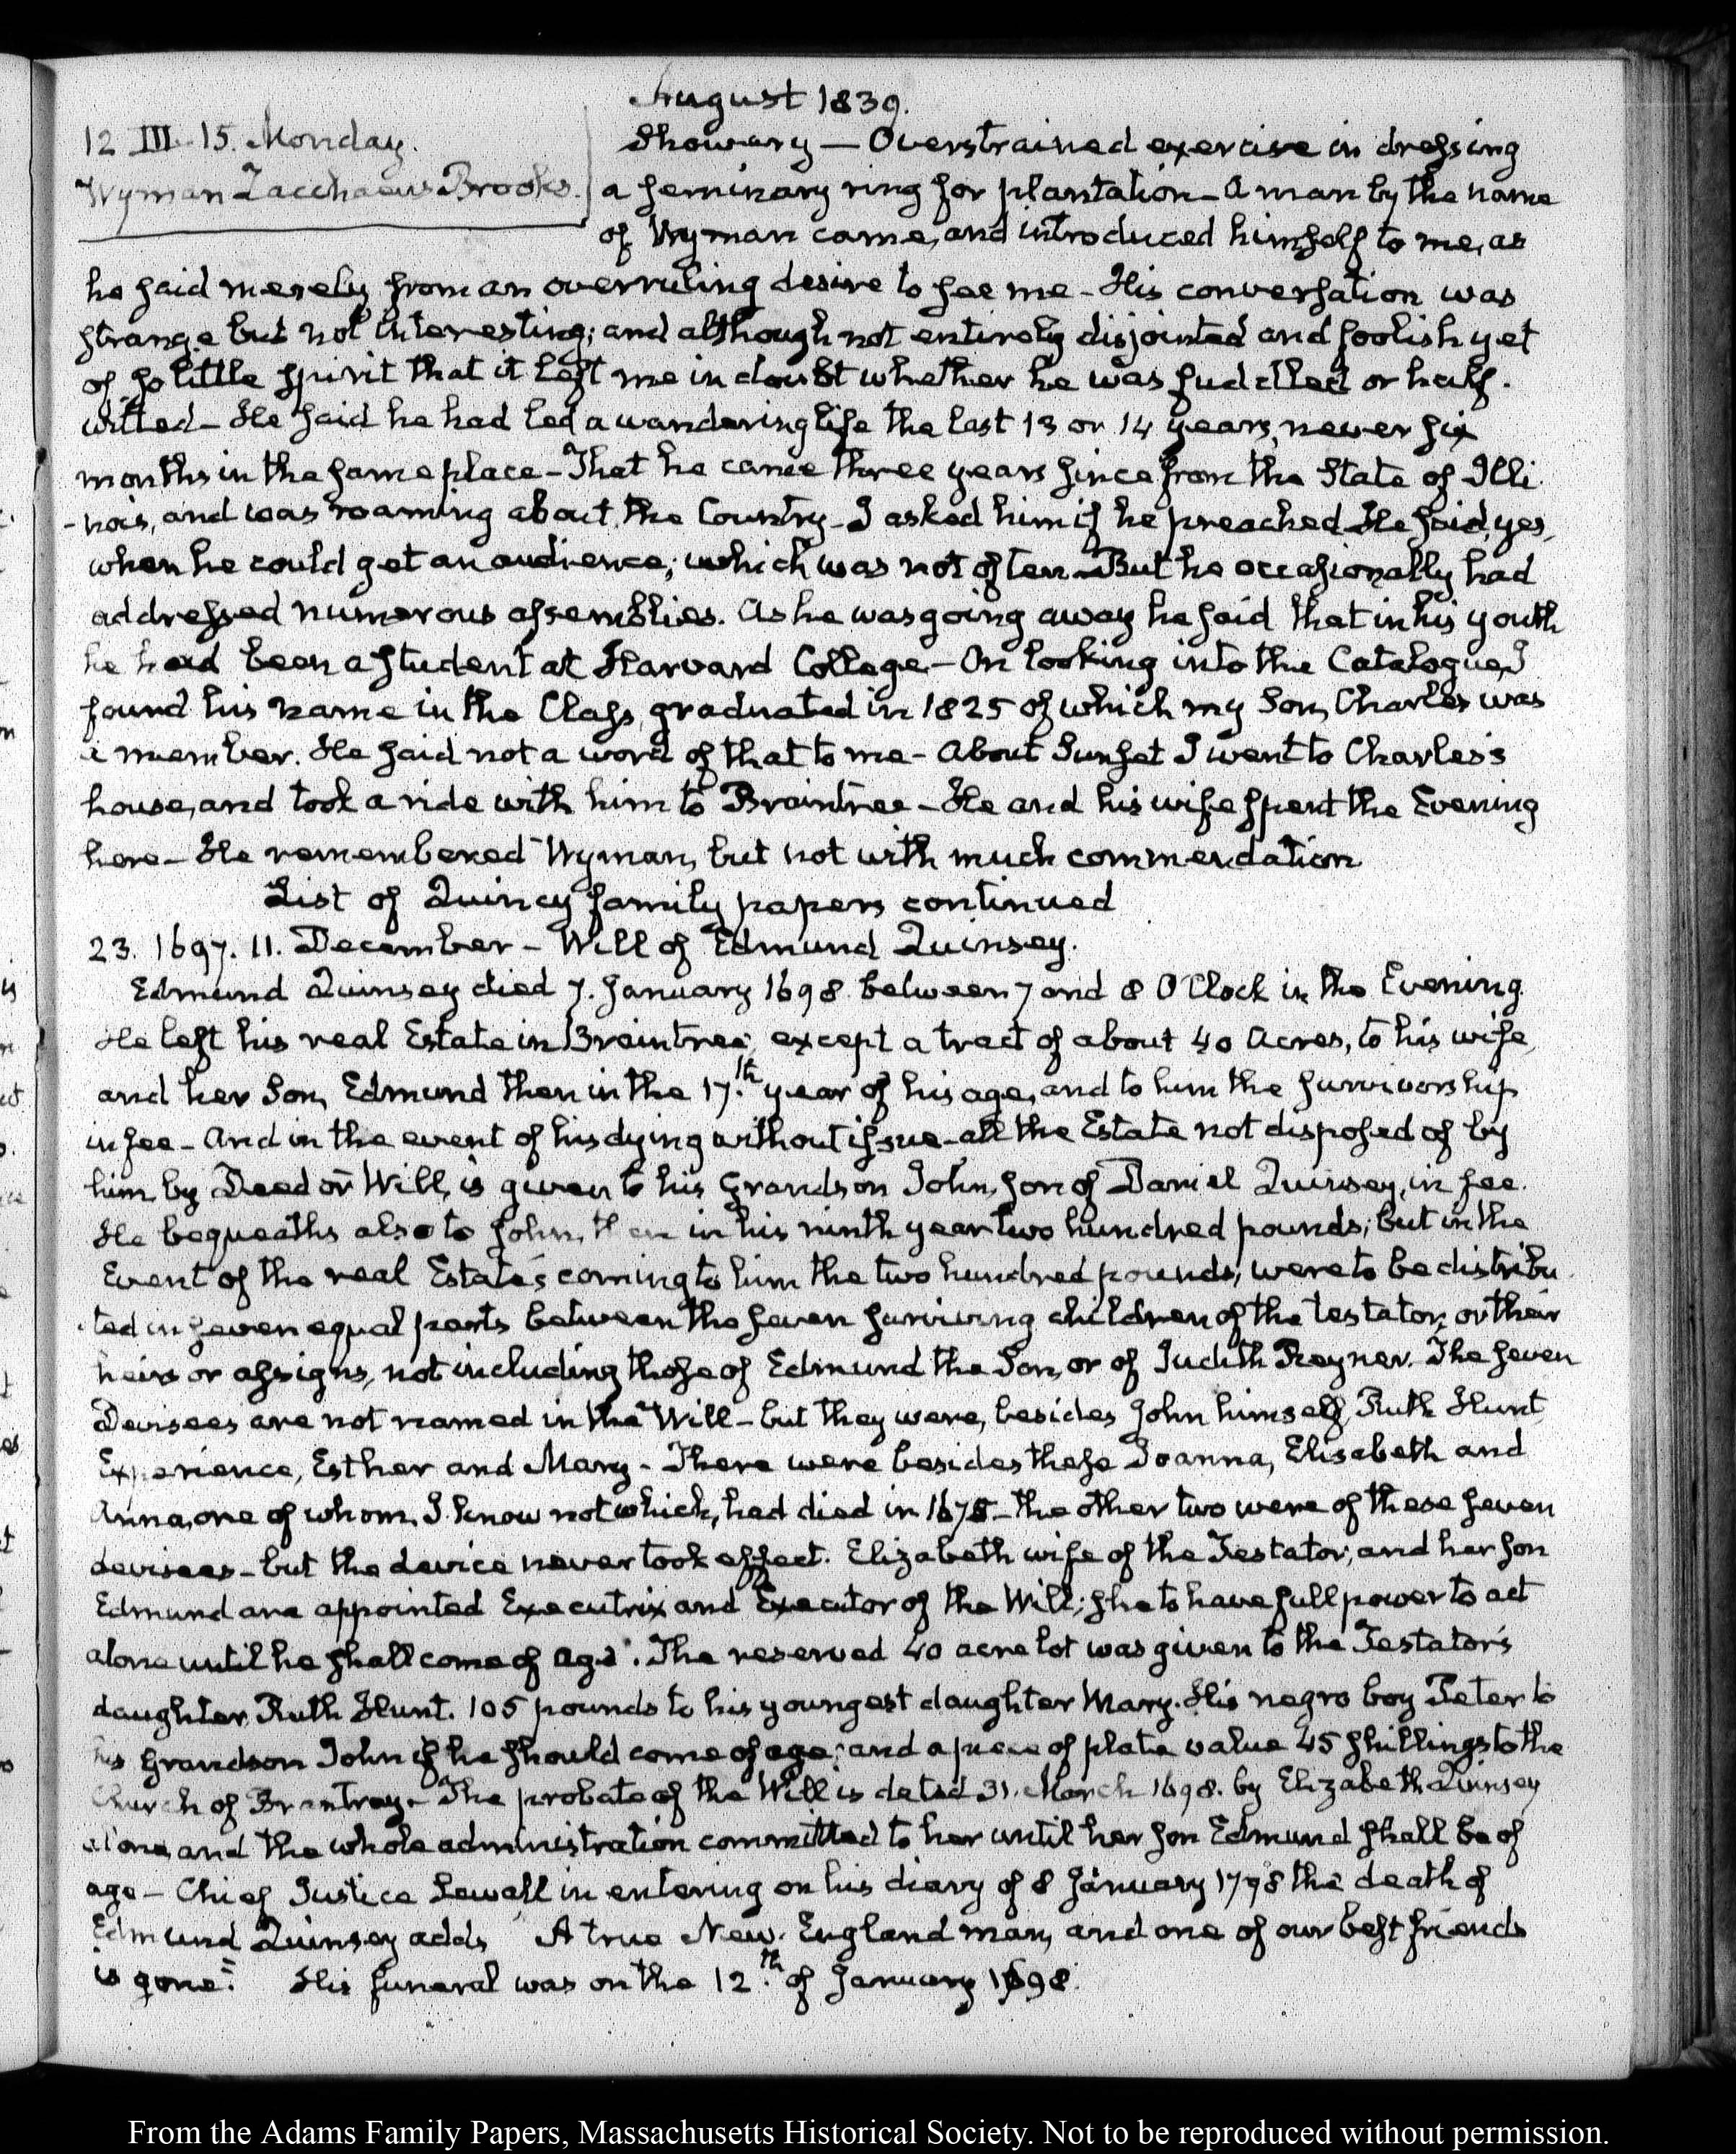 August 1839.
12 III. 15. Monday.
Wyman Zacchaeus Brooks.
Showery — Overstrained exercise in dressing
a seminary ring for plantation — A man by the name
of Wyman came, and introduced himself to me, as
he said merely from an overruling desire to see me — His conversation was
strange but not interesting; and although not entirely disjointed and foolish yet
of so little spirit that it left me in doubt whether he was fuddled or half-
witted — He said he had led a wandering life the last 13 or 14 years, never six
months in the same place — That he came three years since from the State of Illi-
-nois, and was roaming about the Country — I asked him if he preached He said, yes,
when he could get an audience; which was not often — But he occasionally had
addressed numerous assemblies. As he was going away he said that in his youth
he had been a student at Harvard College — On looking into the Catalogue, I
found his name in the Class, graduated in 1825 of which my Son, Charles was
a member. He said not a word of that to me — About Sunset I went to Charles's
house, and took a ride with him to Braintree — He and his wife spent the Evening
here — He remembered Wyman, but not with much commendation
List of Quincy family papers continued
23. 1697. 11. December — Will of Edmund Quinsey.
Edmund Quinsey died 7. January 1698. between 7 and 8 O'Clock in the Evening.
He left his real Estate in Braintree, except a tract of about 40 Acres, to his wife,
and her Son, Edmund then in the 17.th year of his age, and to him the survivorship
in fee — And in the event of his dying without issue — all the Estate not disposed of by
him, by Deed or Will, is given to his Grandson John, son of Daniel Quinsey, in fee.
He bequeaths also to John, then in his ninth year two hundred pounds; but in the
Event of the real Estate's coming to him the two hundred pounds, were to be distribu
-ted in seven equal parts between the seven surviving children of the testator, or their
heirs or assigns, not including those of Edmund the Son, or of Judith Reyner. The seven
Devisees are not named in the Will — but they were, besides John himself, Ruth Hunt
Experience, Esther and Mary — There were besides these Joanna, Elisabeth and
Anna, one of whom, I know not which, had died in 1675 — the other two were of these seven
devisees — but the device never took effect. Elizabeth wife of the Testator, and her son
Edmund are appointed Executrix and Executor of the Will; she to have full power to act
alone until he shall come of age. The reserved 40 acre lot was given to the Testator's
daughter Ruth Hunt. 105 pounds to his youngest daughter Mary. His negro boy Peter to
his Grandson John if he should come of age; and a piece of plate value 45 shillings to the
Church of Braintrey — The probate of the Will is dated 31. March 1698. by Elizabeth Quinsey
alone, and the whole administration committed to her until her son Edmund shall be of
age — Chief Justice Sewall in entering on his diary of 8 January 1798 the death of
Edmund Quinsey adds "A true New-England man, and one of our best friends
is gone." His funeral was on the 12.th of January 1698.
From the Adams Family Papers, Massachusetts Historical Society. Not to be reproduced without permission.